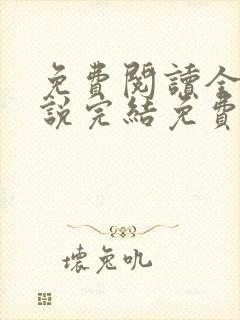 免費閱讀全
說完結免費
壞兔吼